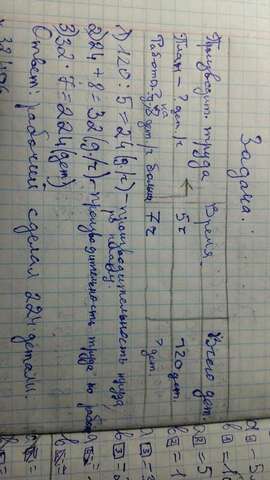 Задача.
Производит. труда Время Всего дет.
План – ? дет./ч 5ч 120 дет
Работа – ? на 8 дет/ч больше 7ч ? дет.
1) 120 : 5 = 24 (д/ч) – производительность труда по плану
2) 24 + 8 = 32 (д/ч) – производительность труда по работе
3) 32 · 7 = 224 (дет)
Ответ: рабочий сделал 224 детали.